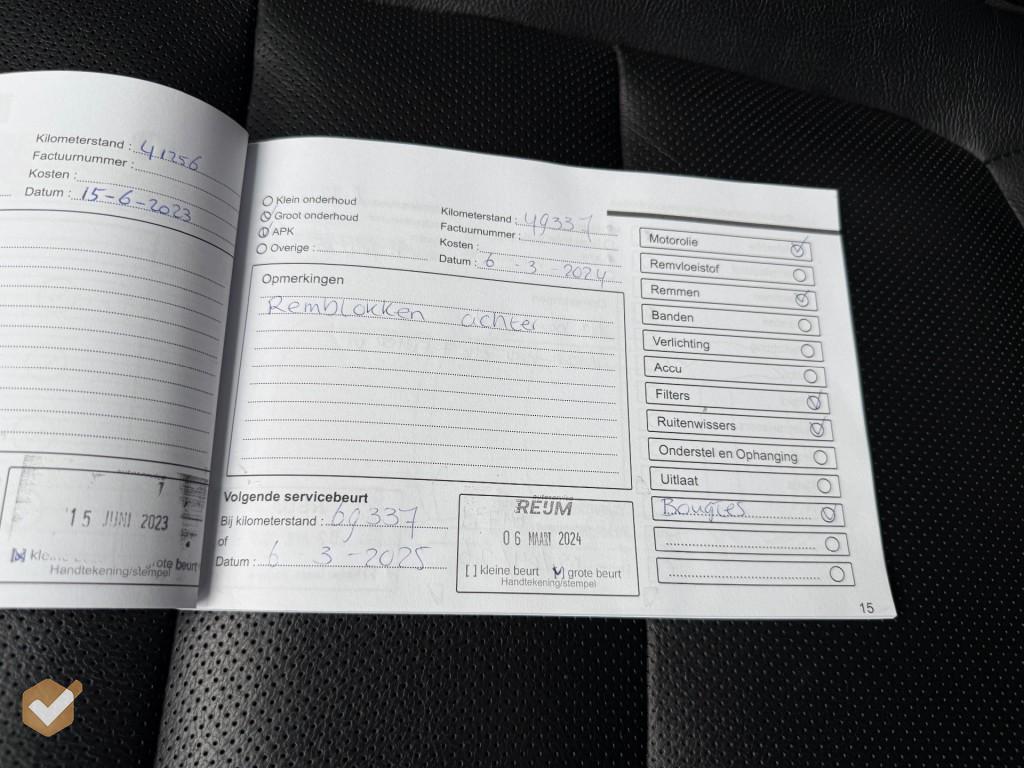 Kilometerstand : 41256
Factuurnummer :
Kosten :
Datum : 15-6-2023
15 JUNI 2023
Handtekening/stempel
Klein onderhoud
Groot onderhoud
APK
Overige :
Kilometerstand : 49337
Factuurnummer :
Kosten :
Datum : 6 - 3 - 2024
Opmerkingen
Remblokken achter
Volgende servicebeurt
Bij kilometerstand : 69337
of
Datum : 6 3 - 2025
autoservice
REIJM
06 MAART 2024
[ ] kleine beurt [v] grote beurt
Handtekening/stempel
Motorolie
Remvloeistof
Remmen
Banden
Verlichting
Accu
Filters
Ruitenwissers
Onderstel en Ophanging
Uitlaat
Bougies
15